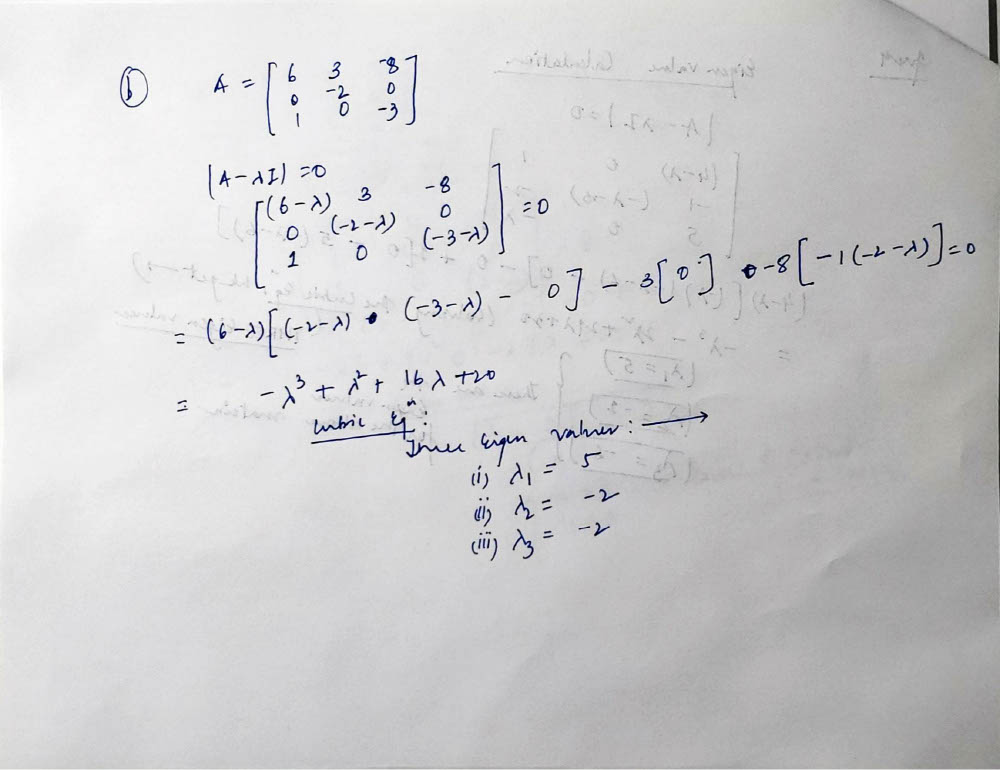 (b) A = [ 6 3 -8
0 -2 0
1 0 -3 ]
|A-λI| = 0
[ (6-λ) 3 -8
0 (-2-λ) 0
1 0 (-3-λ) ] = 0
= (6-λ)[(-2-λ) • (-3-λ) - 0] - 3[0] -8[-1(-2-λ)] = 0
= -λ³ + λ² + 16λ + 20
cubic Eqⁿ:
Three Eigen values: →
(i) λ₁ = 5
(ii) λ₂ = -2
(iii) λ₃ = -2